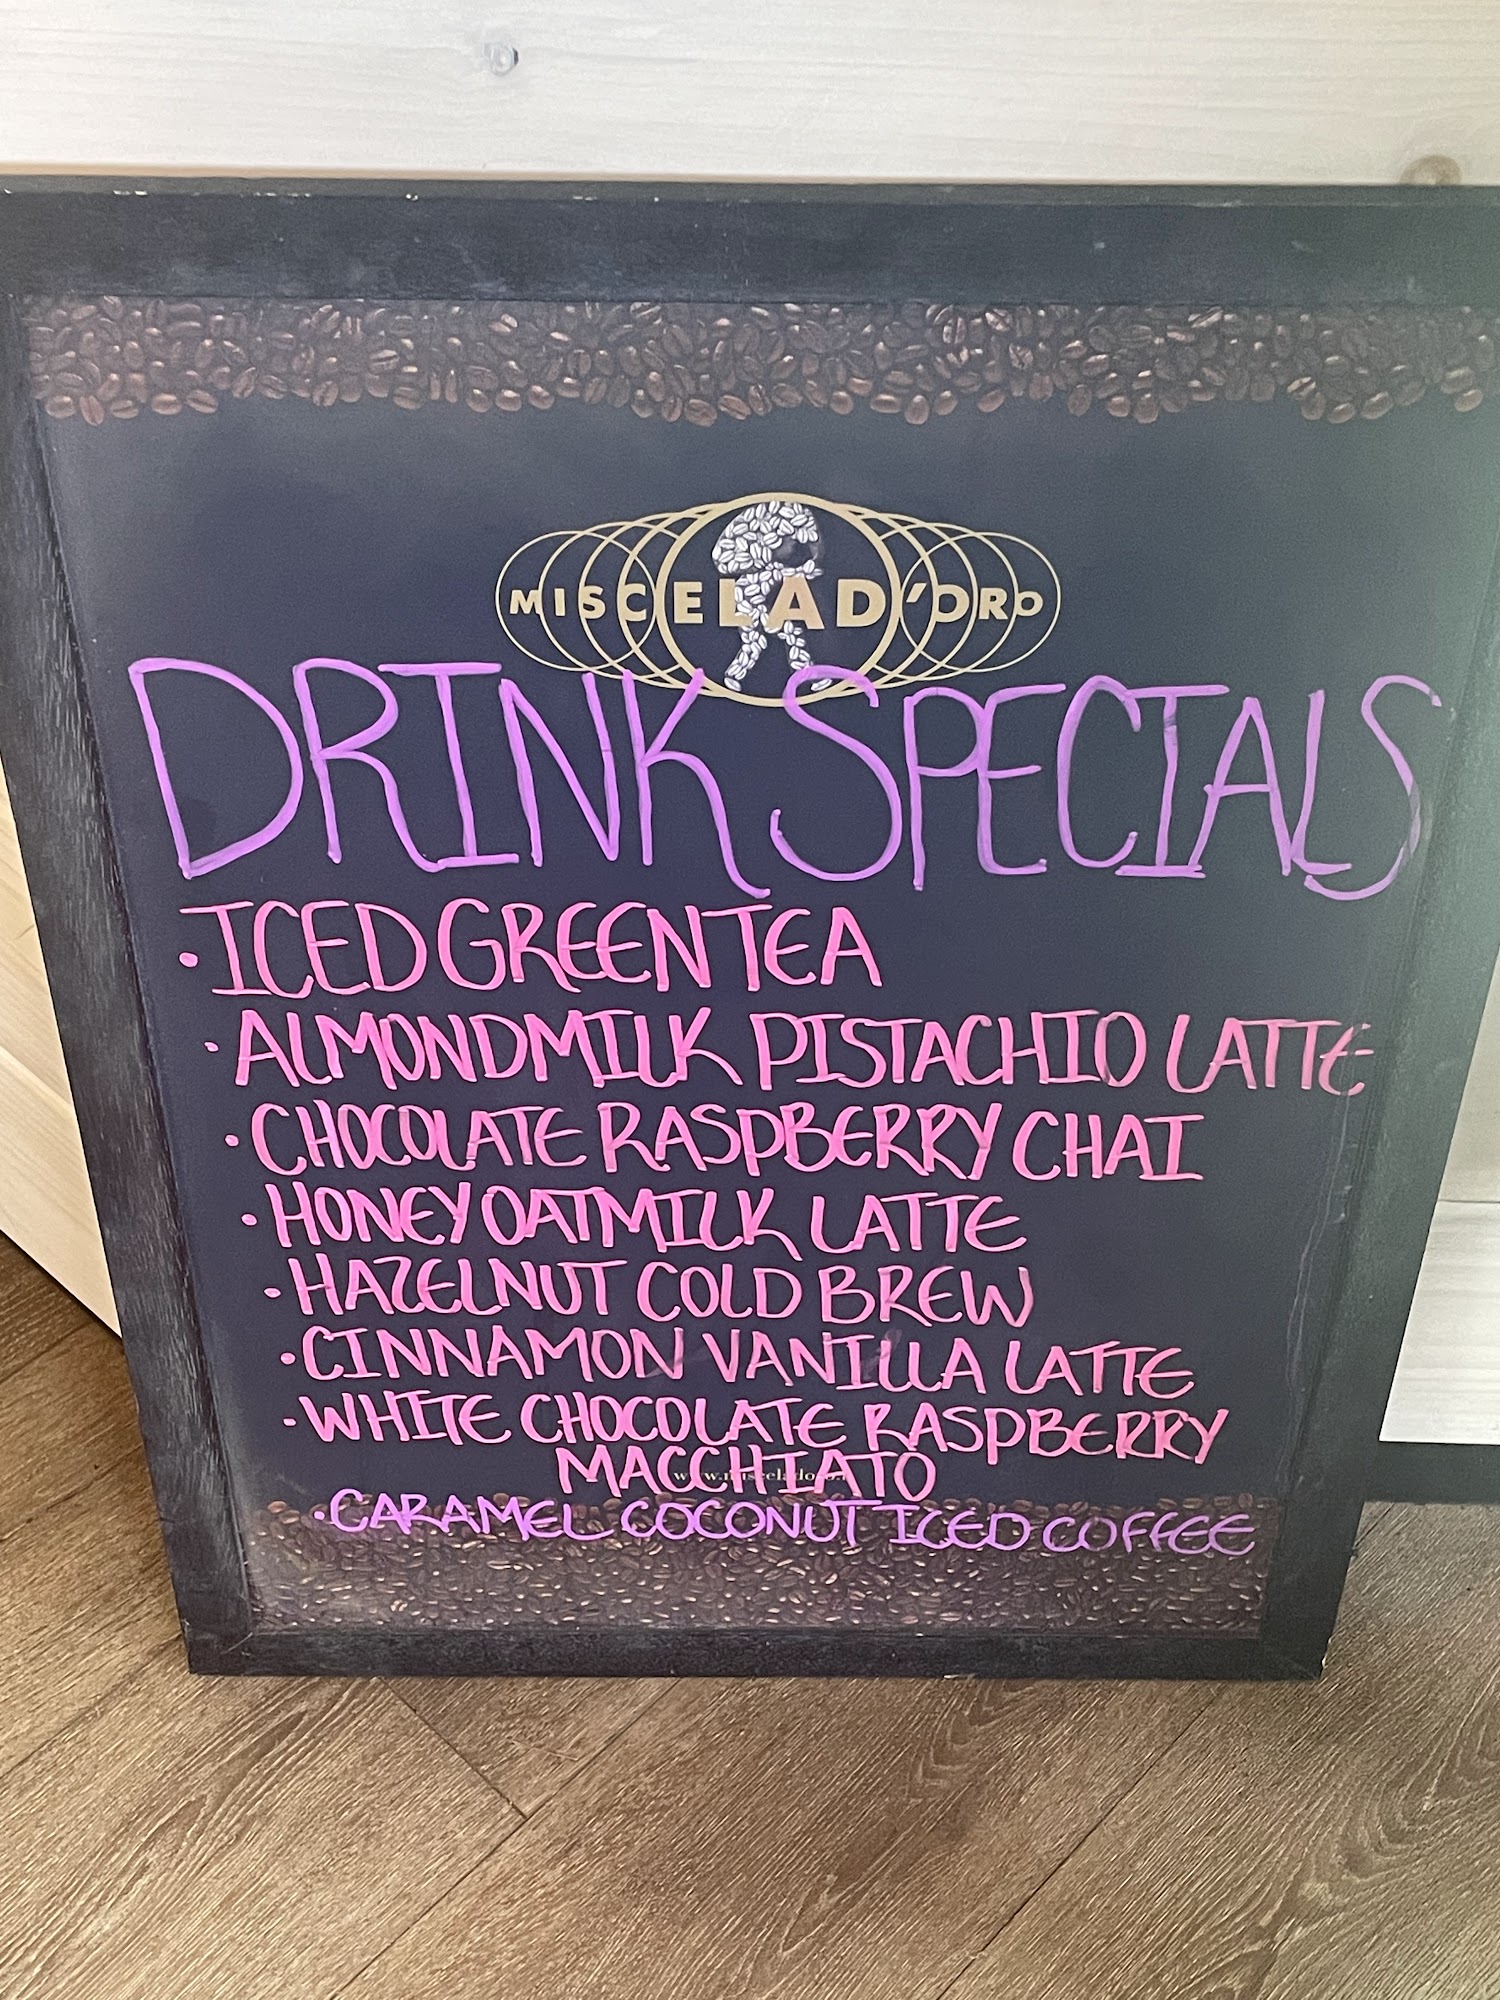 MISCELA D'ORO
DRINK SPECIALS
• ICED GREEN TEA
• ALMONDMILK PISTACHIO LATTE
• CHOCOLATE RASPBERRY CHAI
• HONEY OATMILK LATTE
• HAZELNUT COLD BREW
• CINNAMON VANILLA LATTE
• WHITE CHOCOLATE RASPBERRY
MACCHIATO
• CARAMEL COCONUT ICED COFFEE